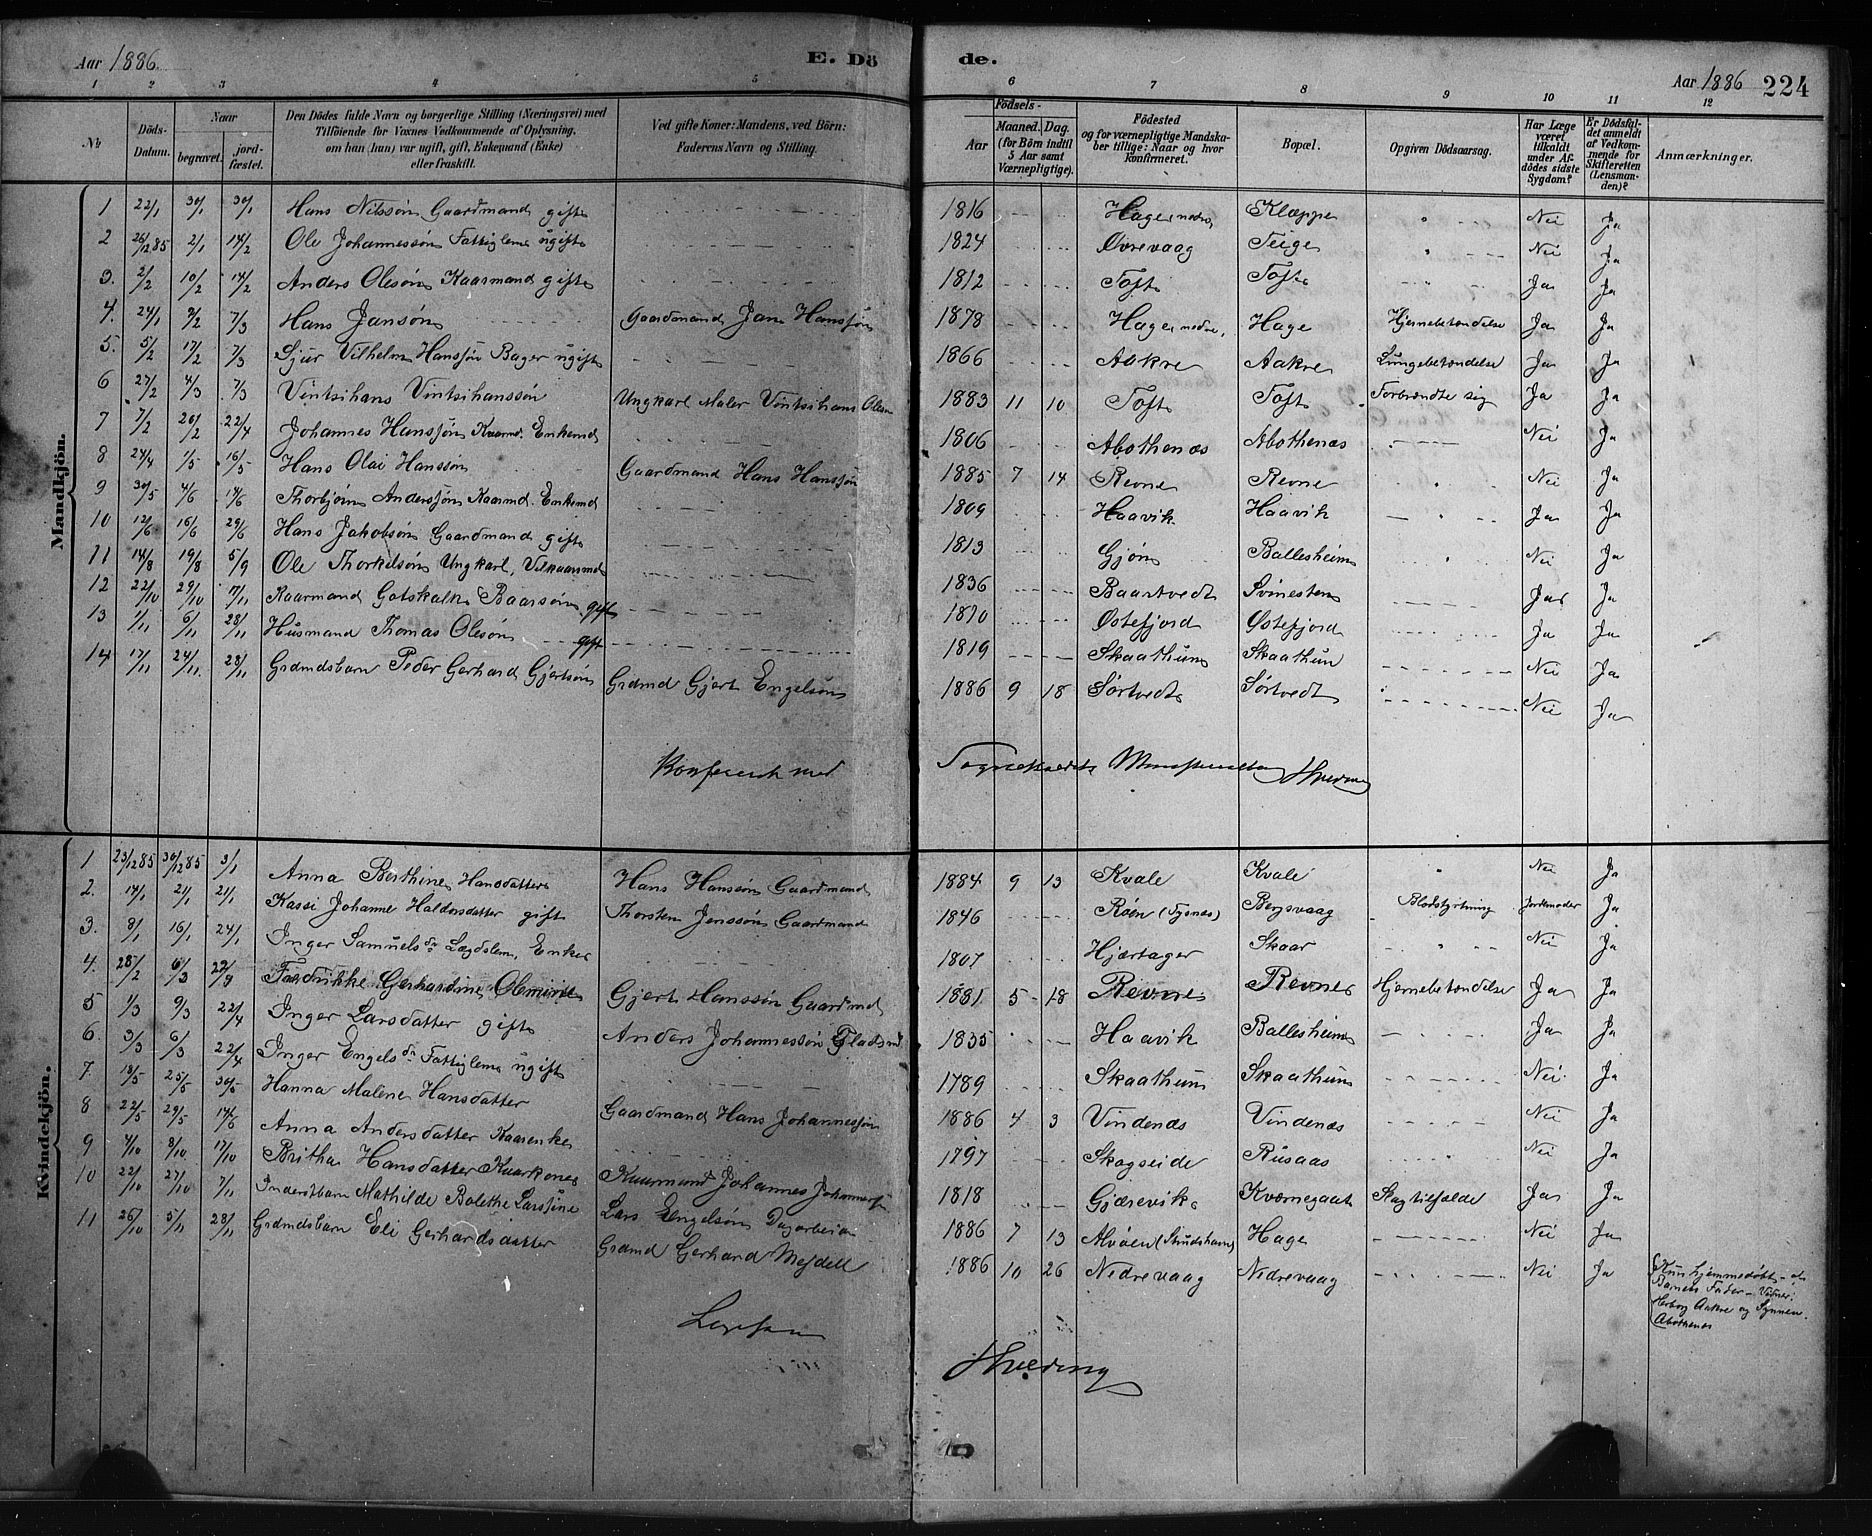 Aar 1886. E. Dö de. Aar 1886 224
1 2 3 4 5 6 7 8 9 10 11 12
No
Döds-Datum.
Naar
begravet.
jord-fæstet.
Den Dödes fulde Navn og borgerlige Stilling (Næringsvei) med
Tilföiende for Voxnes Vedkommende af Oplysning,
om han (hun) var ugift, gift, Enkemand (Enke)
eller fraskilt.
Ved gifte Koner: Mandens, ved Börn:
Faderens Navn og Stilling.
Födsels-
Aar
Maaned. Dag.
(for Börn indtil
5 Aar samt
Værnepligtige).
Födested
og for værnepligtige Mandska-
ber tillige: Naar og hvor
konfirmeret.
Bopæl.
Opgiven Dödsaarsag.
Har Læge
været
tilkaldt
under Af-
dödes sidste
Sygdom?
Er Dödsfal-
det anmeldt
af Vedkom-
mende for
Skifteretten
(Lensman-
den)?
Anmærkninger.
Mandkjön.
1 22/1 30/1 30/1 Hans Nilssøn Gaardmand gift 1816 Hage, nedre Klæppe " Nei Ja
2 26/12 85 2/1 14/2 Ole Johannessøn Fattiglem ugift 1824 Øvrevaag Teige " Nei Ja
3. 2/2 10/2 14/2 Anders Olesøn Kaarmand gift 1812 Toft Toft " Ja Ja
4. 24/1 2/2 7/3 Hans Jansøn Gaardmand Jan Hanssøn 1878 Hage, nedre, Hage Hjernebetændelse Ja Ja
5. 5/2 17/2 7/3 Sjur Vilhelm Hanssøn Bager ugift 1866 Aakre Aakre Lungebetændelse Ja Ja
6 27/2 4/3 7/3 Vintsihans Vintsihanssøn Ungkarl Maler Vintsihans Olesen 1883 11 10 Toft Toft Forbrændte sig Ja Ja
7 7/2 26/2 22/4 Johannes Hanssøn Kaarmd. Enkemd 1806 Abothenæs Abothenæs Nei Ja
8 24/4 1/5 16/5 Hans Olai Hanssøn Gaardmand Hans Hanssøn 1885 7 14 Revne Revne " Nei Ja
9 30/5 4/6 14/6 Thorbjørn Anderssøn Kaarmd. Enkemd 1809 Haavik Haavik " Ja Ja
10 12/6 16/6 29/6 Hans Jakobsøn Gaardmand gift 1813 Gjøn Ballesheim " Nei Ja
11 14/8 19/8 5/9 Ole Thorkelsøn Ungkarl, Vilkaarsmd 1836 Baartvedt Svinesten Ja Ja
12 22/10 29/10 7/11 Kaarmand Gotskalk Baarsøn gift 1810 Østefjord Østefjord Ja Ja
13 1/11 6/11 28/11 Husmand Thomas Olesøn gift 1819 Skaathun Skaathun Nei Ja
14 17/11 24/11. 28/11 Grdmdsbarn Peder Gerhard Gjertsøn Grdmd Gjert Engelsøn 1886 9 18 Sørtvedt Sørtvedt Nei Ja
Konfereret med Hvæding
Kvindekjön.
1 23/12 85 30/12 85 3/1 Anna Berthine Hansdatter Hans Hansøn Gaardmand 1884 9 13 Kvale Kvale " Nei Ja
2. 14/1 21/1 21/1 Kassi Johanne Haldorsdatter gift Thorsten Jenssøn Gaardmand 1846 Røen (Tysnes) Bergsvaag Blodstyrtning Jordemoder Ja
3. 8/1 16/1 24/1 Inger Samuelsdr Lægdslem, Enke 1807 Hjærtager Skaar " Nei Ja
4. 28/2 6/3 22/4 Fredrikke Gerhardine Olmine Gjert Hanssøn Gaardmd 1881. 5 18 Revne Revne Hjernebetændelse Ja Ja
5 1/3 9/3 22/4 Inger Larsdatter gift Anders Johannessøn Pladsmd 1835 Haavik Ballesheim Ja Ja
6. 3/3 6/3 22/4 Inger Engelsdr Fattiglem ugift 1789 Skaathun Skaathun Nei Ja
7. 18/5 25/5 30/5 Hanna Malene Hansdatter Gaardmand Hans Johannessøn 1886 4 3 Vindenæs Vindenæs Nei Ja
8 22/5 29/5 14/6 Anna Andersdatter Kaarenke 1797 Skogseide Rusaas Nei Ja
9 4/10 8/10 17/10 Britha Hansdatter Kaarkone Kaarmand Johannes Johannessøn 1818 Gjærevik Kværnegaat Slagtilfælde Ja Ja
10 22/10 27/10 7/11 Inderstbarn Mathilde Bolette Larssine Lars Engelsøn Dagarbeider 1886 7 13 Alvøen (Strudshavn) Hage Nei Ja
11 26/10 5/11 28/11 Grdmdsbarn Eli Gerhardsdatter Grdmd Gerhard Mejdell 1886 10 26 Nedrevaag Nedrevaag Nei Ja
Kun hjemmedøbt af
Barnets Fader. Vidner:
Herborg Aakre og Synneva
Abothenæs
Hvæding